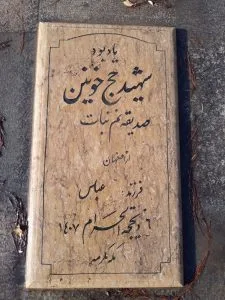 یادبود
شهید حج خونین
صدیقه غم نبات
از اصفهان
فرزند: عباس
۶ ذیحجة الحرام ۱۴۰۷
مکه مکرمه